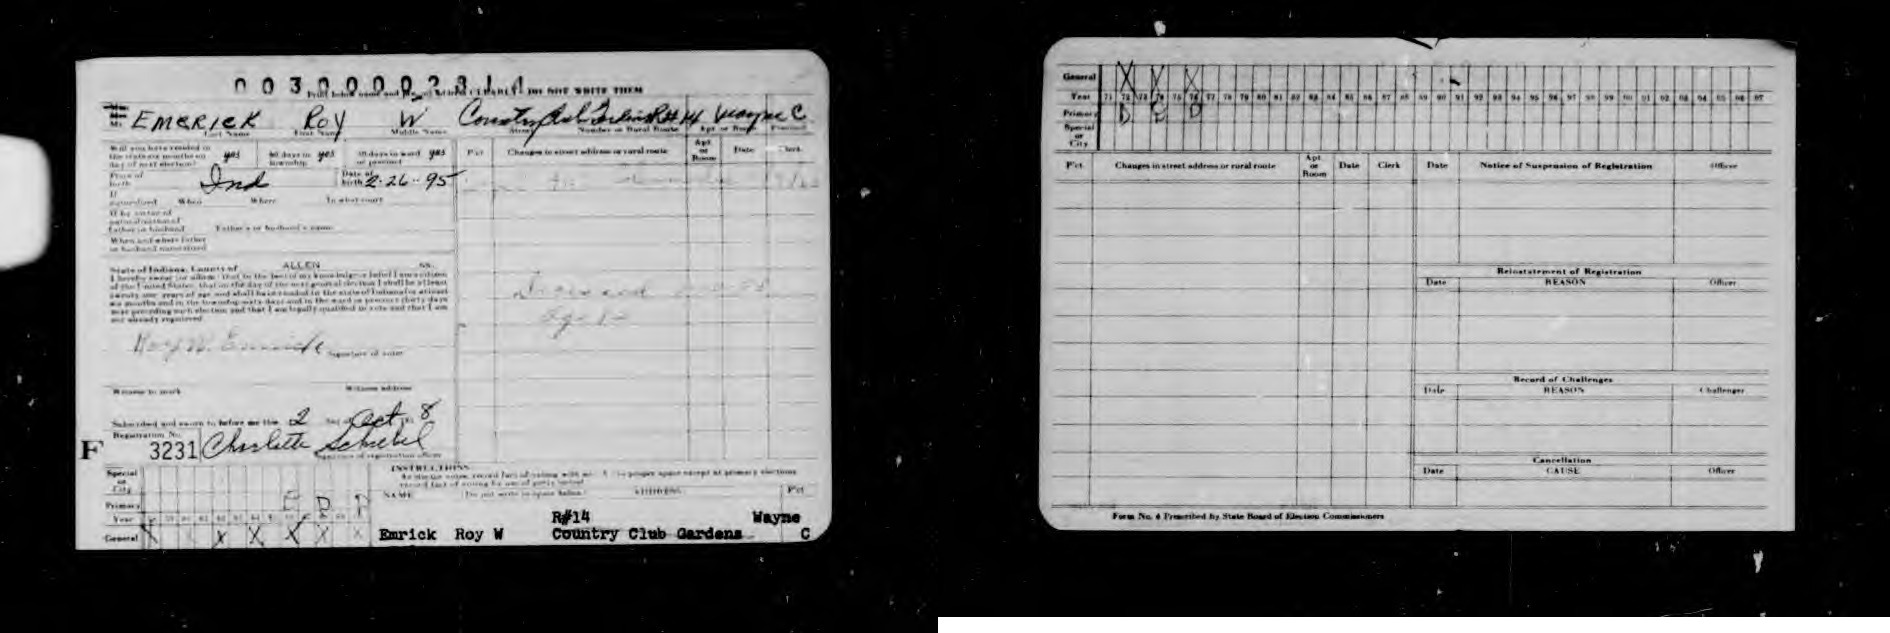 00300002314
Print below name and DO NOT WRITE THEM
EMERICK Roy W Country Club Gardens R#14 Wayne C
Last Name First Name Middle Name Street Number or Rural Route Apt or Room Precinct
Will you have resided in the state six months on day of next election? yes 60 days in township yes 30 days in ward or precinct yes
Pct Changes in street address or rural route Apt or Room Date Clerk
Place of birth Ind Date of birth 2-26-95
If naturalized When Where In what court
If by virtue of naturalization of Father or husband Father's or husband's name
When and where Father or husband naturalized
State of Indiana, County of ALLEN ss.
I hereby swear (or affirm) that to the best of my knowledge or belief I am a citizen
of the United States, that on the day of the next general election I shall be at least
twenty one years of age and shall have resided in the state of Indiana at least
six months and in the township sixty days and in the ward or precinct thirty days
next preceding such election and that I am legally qualified to vote and that I am
not already registered
Roy W. Emrick
Signature of voter
Witness to mark Witness address
Subscribed and sworn to before me this 2 day of Oct 8
Registration No.
F 3231 Charlotte Schiebel
Signature of registration officer
INSTRUCTIONS
Special or City
Primary E D D
Year
General X X X X X X
NAME Do not write in space below ADDRESS Pct
R#14 Wayne
Emrick Roy W Country Club Gardens C
General X X X
Year 71 72 73 74 75 76 77 78 79 80 81 82 83 84 85 86 87 88 89 90 91 92 93 94 95 96 97 98 99 00 01 02 03 04 05 06 07
Primary D E D
Special or City
Pct Changes in street address or rural route Apt or Room Date Clerk Date Notice of Suspension of Registration Officer
Reinstatement of Registration
Date REASON Officer
Record of Challenges
Date REASON Challenger
Cancellation
Date CAUSE Officer
Form No. 4 Prescribed by State Board of Election Commissioners